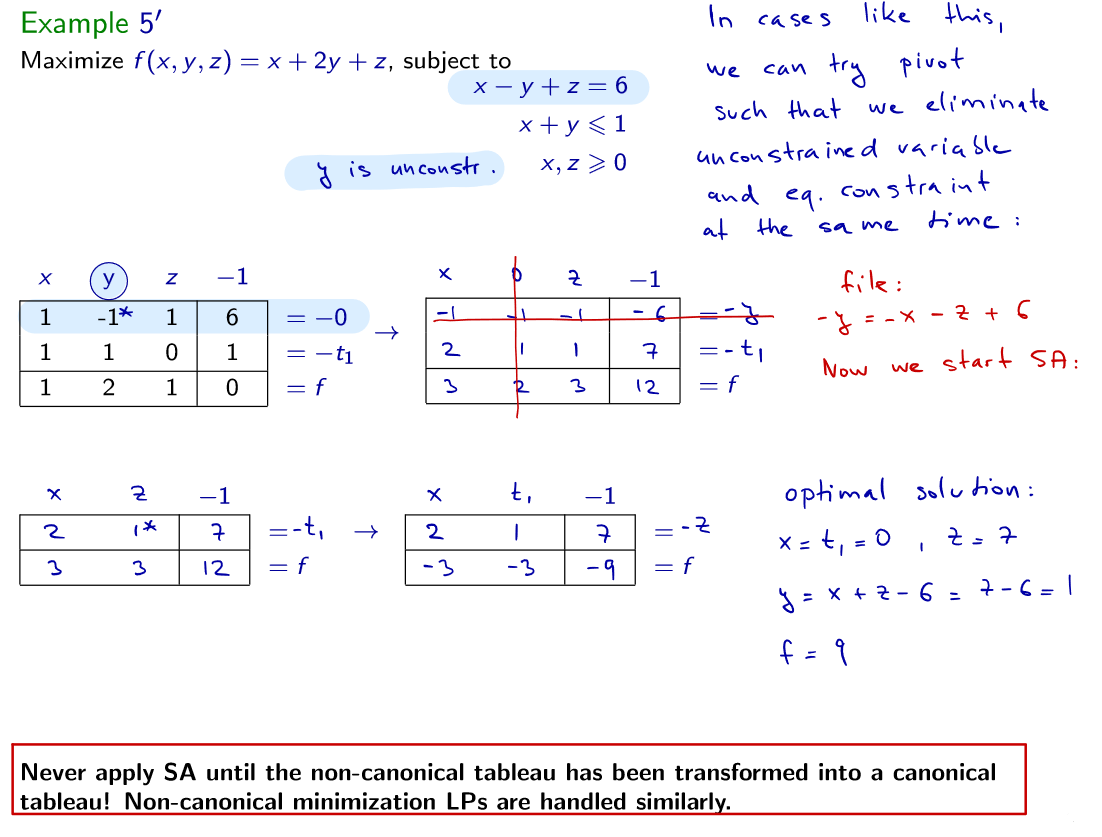 Example 5′
Maximize f(x, y, z) = x + 2y + z, subject to
x − y + z = 6
x + y ⩽ 1
y is unconstr. x, z ⩾ 0
In cases like this,
we can try pivot
such that we eliminate
unconstrained variable
and eq. constraint
at the same time :
x y z −1
1 -1* 1 6 = −0
1 1 0 1 = −t₁
1 2 1 0 = f
→
x 0 z −1
-1 -1 -1 -6 = -y
2 1 1 7 = -t₁
3 2 3 12 = f
file:
-y = -x - z + 6
Now we start SA:
x z −1
2 1* 7 = -t₁
3 3 12 = f
→
x t₁ −1
2 1 7 = -z
-3 -3 -9 = f
optimal solution:
x = t₁ = 0 , z = 7
y = x + z - 6 = 7 - 6 = 1
f = 9
Never apply SA until the non-canonical tableau has been transformed into a canonical
tableau! Non-canonical minimization LPs are handled similarly.